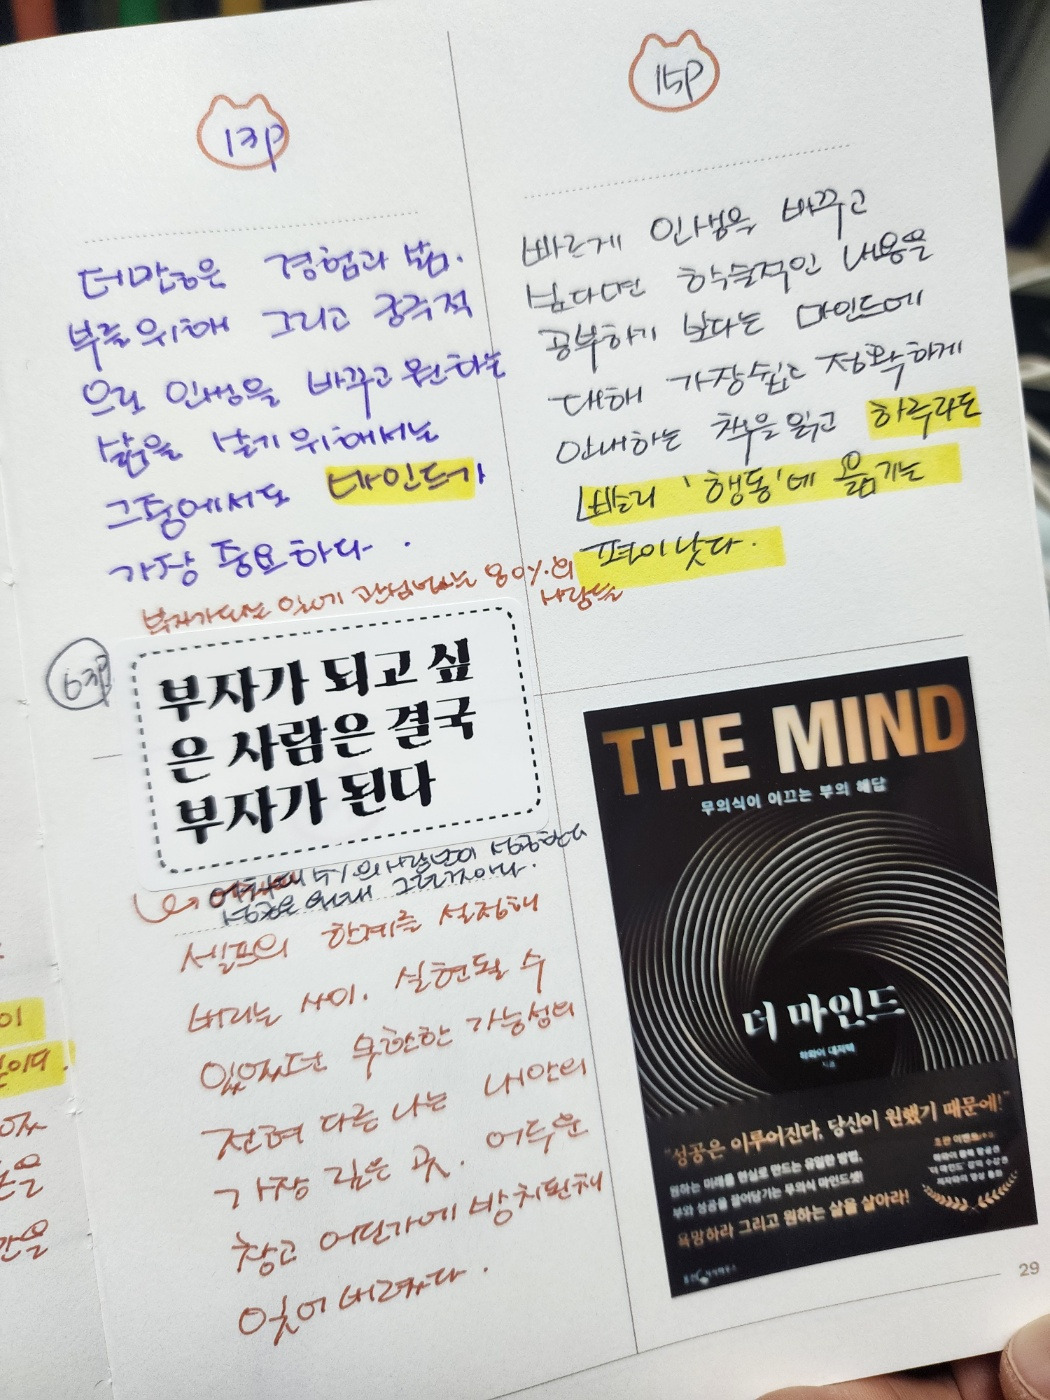 13P
더 많은 경험과 삶.
부를 위해 그리고 궁극적
으로 인생을 바꾸고 원하는
삶을 살기 위해서는
그중에서도 마인드가
가장 중요하다.
부자가 되는 일에 관심없는 80%의
사람들
6P
부자가 되고 싶
은 사람은 결국
부자가 된다
사람만이 성공한다
성공은 원래 그런거야.
셀프의 한계를 설정해
버리는 사이. 실현될 수
있었던 무한한 가능성의
전혀 다른 나는 내안의
가장 깊은 곳. 어두운
창고 어딘가에 방치된채
잊어버렸다.
15P
빠르게 인생을 바꾸고
싶다면 학술적인 내용을
공부하기 보다는 마인드에
대해 가장 쉽고 정확하게
안내하는 책을 읽고 하루라도
빨리 '행동'에 옮기는
편이 낫다.
THE MIND
무의식이 이끄는 부의 해답
더 마인드
하와이 대저택
지음
"성공은 이루어진다, 당신이 원했기 때문에!"
원하는 미래를 현실로 만드는 유일한 방법,
부와 성공을 끌어당기는 무의식 마인드셋!
욕망하라 그리고 원하는 삶을 살아라!
29
이